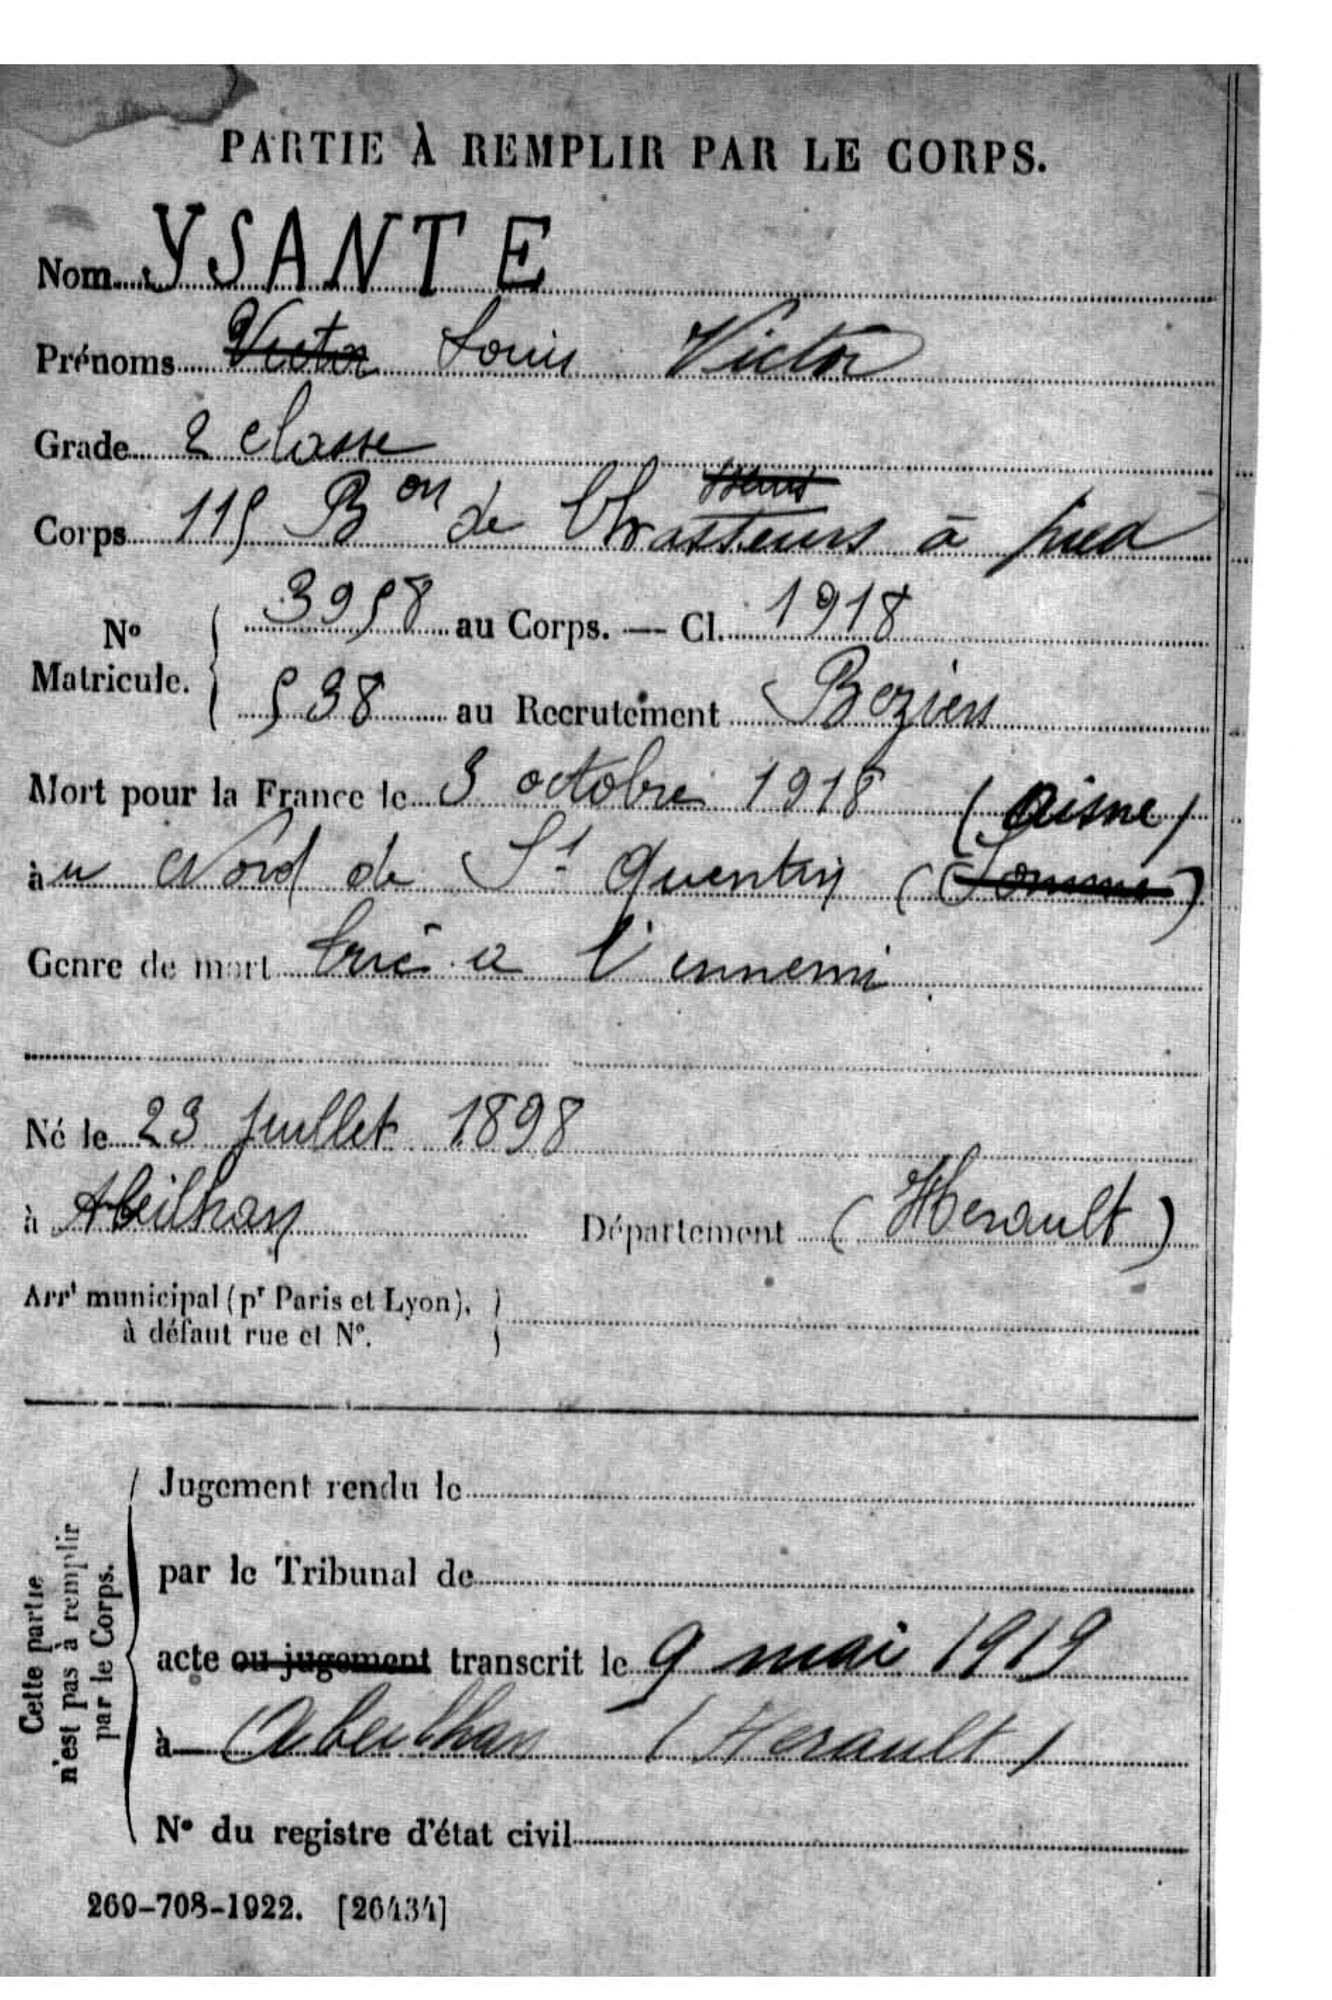 PARTIE À REMPLIR PAR LE CORPS.
Nom YSANTE
Prénoms Victor Louis Victor
Grade 2 classe
Corps 115 Bon de Chasseurs à pied
No Matricule. 3958 au Corps. — Cl. 1918
538 au Recrutement Beziers
Mort pour la France le 3 octobre 1918 (Aisne)
àu Nord de St Quentin (Somme)
Genre de mort tué a l'ennemi
Né le 23 Juillet 1898
à Abeilhan Département (Herault)
Arrt municipal (pr Paris et Lyon),
à défaut rue et No.
Cette partie n'est pas à remplir par le Corps.
Jugement rendu le
par le Tribunal de
acte ou jugement transcrit le 9 mai 1919
à Abeilhan (Herault)
No du registre d'état civil
269-708-1922. [26434]